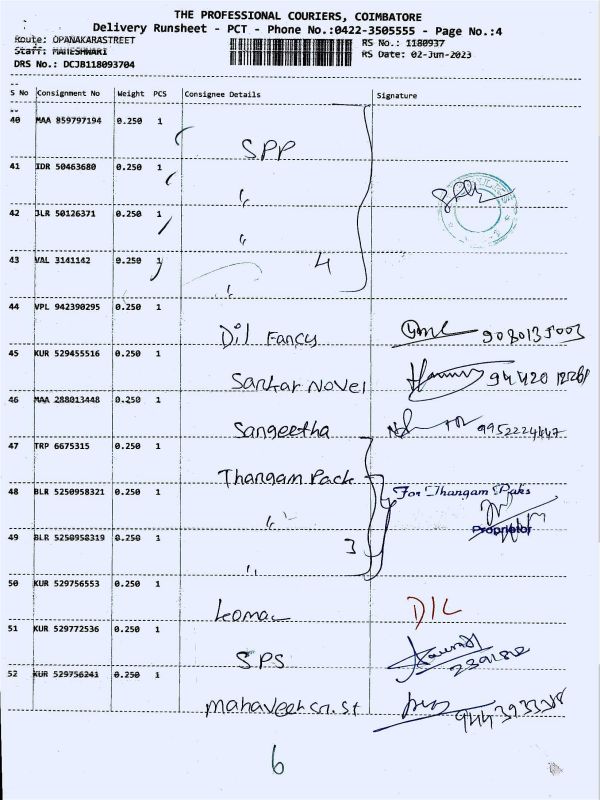 THE PROFESSIONAL COURIERS, COIMBATORE
Delivery Runsheet - PCT - Phone No.:0422-3505555 - Page No.:4
Route: OPANAKARASTREET RS No.: 1180937
Staff: MAHESHWARI RS Date: 02-Jun-2023
DRS No.: DCJB118093704
S No Consignment No Weight PCS Consignee Details Signature
40 MAA 859797194 0.250 1
SPP
41 IDR 50463680 0.250 1
"
42 JLR 50126371 0.250 1
"
43 VAL 3141142 0.250 1
4
"
44 VPL 942390295 0.250 1
Dil Fancy
45 KUR 529455516 0.250 1
Sankar Novel
46 MAA 288013448 0.250 1
Sangeetha 9952224447
47 TRP 6675315 0.250 1
Thangam Pack
48 BLR 5250958321 0.250 1 For Thangam Paks
"
Proprietor
49 BLR 5250958319 0.250 1
3
"
50 KUR 529756553 0.250 1
D/L
51 KUR 529772536 0.250 1
SPS
52 KUR 529756241 0.250 1
6